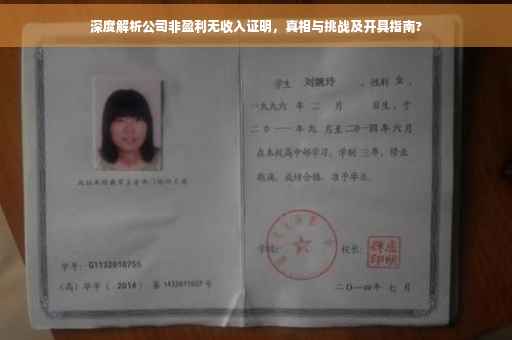 深度解析公司非盈利无收入证明，真相与挑战及开具指南?
学生 刘婉玲 ，性别 女 ，
一九九六 年 二 月 日生，于
二〇一一 年 九 月至 二〇一四 年 六 月
在本校高中部学习，学制 三 年，修业
期满，成绩合格，准予毕业。
学号：G1132010755
(高) 毕字 ( 2014 ) 第 1432011027 号
学校：
校长：
二〇一四年 七 月